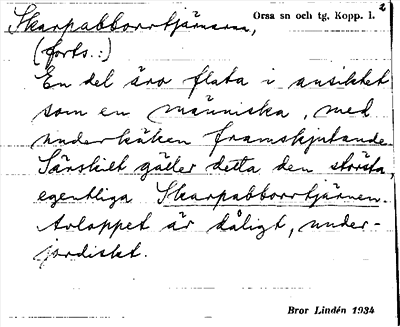 Skarpabborrtjärnarna, Orsa sn och tg. Kopp. l. 2
(forts.:)
En del äro flata i ansiktet
som en människa, med
underkäken framskjutande.
Särskilt gäller detta den största,
egentliga Skarpabborrtjärnen.
Avloppet är dåligt, under-
jordiskt.
Bror Lindén 1934